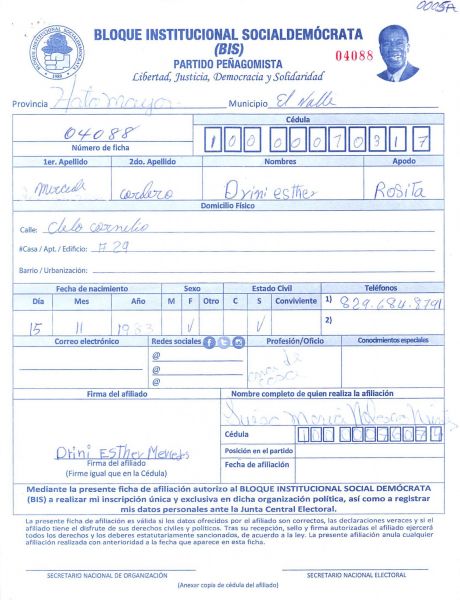 0005A
BLOQUE INSTITUCIONAL SOCIALDEMÓCRATA
(BIS)
PARTIDO PEÑAGOMISTA
Libertad, Justicia, Democracia y Solidaridad
04088
Provincia Hato mayor Municipio El Valle
04088
Número de ficha
Cédula
1.er. Apellido 2do. Apellido Nombres Apodo
Mercede Cordero Drini esther Rosita
Domicilio Físico
Calle: Clelo cornelio
#Casa / Apt. / Edificio: # 29
Barrio / Urbanización:
Fecha de nacimiento Sexo Estado Civil Teléfonos
Día Mes Año M F Otro C S Conviviente 1) 829.684.8791
15 11 1983 √ √ 2)
Correo electrónico Redes sociales Profesión/Oficio Conocimientos especiales
@
@
@
Firma del afiliado Nombre completo de quien realiza la afiliación
Cédula
Drini Esther
Firma del afiliado
(Firma igual que en la Cédula)
Posición en el partido
Fecha de afiliación
Mediante la presente ficha de afiliación autorizo al BLOQUE INSTITUCIONAL SOCIAL DEMÓCRATA
(BIS) a realizar mi inscripción única y exclusiva en dicha organización política, así como a registrar
mis datos personales ante la Junta Central Electoral.
La presente ficha de afiliación es válida si los datos ofrecidos por el afiliado son correctos, las declaraciones veraces y si el
afiliado tiene el disfrute de sus derechos civiles y políticos. Tras su recepción, sello y firma autorizada el afiliado ejercerá
todos los derechos y los deberes estatutariamente sancionados, de acuerdo a la ley. La presente afiliación anula cualquier
afiliación realizada con anterioridad a la fecha que aparece en esta ficha.
SECRETARIO NACIONAL DE ORGANIZACIÓN SECRETARIO NACIONAL ELECTORAL
(Anexar copia de cédula del afiliado)